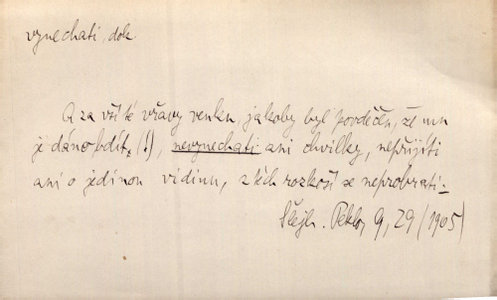 vynechati, dok.
A za vší té vřavy venku, jakoby byl povděčen, že mu
je dáno bdít, (!), nevynechati ani chvilky, nepřijíti
ani o jedinou vidinu, z těch rozkoší se neprobrati –
Šlejh. Peklo, 9, 29 (1905)